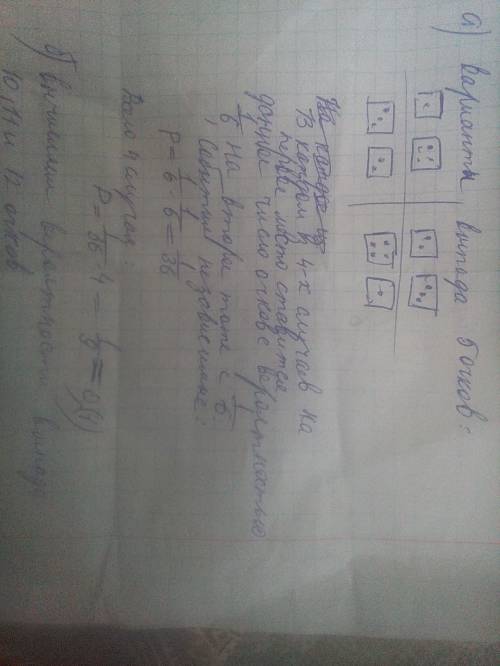 а) Варианты выпада 5 очков:
На каждое из
В каждом из 4-х случаев на
первое место ставится
данное число очков с вероятностью
1/6 На второе тоже с 1/6.
События независимые:
P = 1/6 · 1/6 = 1/36
Всего 4 случая:
P = 1/36 · 4 = 1/9 = 0,(1)
б) Вычислим вероятность выпада
10, 11 и 12 очков